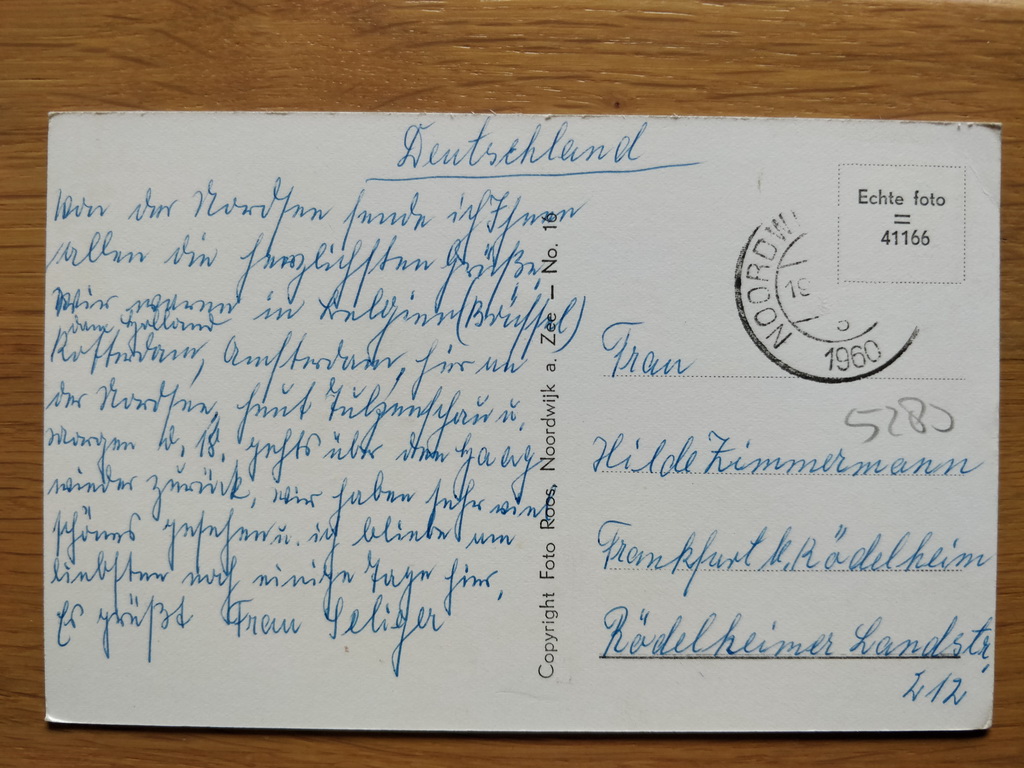 Deutschland
Von der Nordsee sende ich Ihnen
allen die herzlichsten Grüße.
Wir waren in Belgien (Brüssel)
dann Holland
Rotterdam, Amsterdam, hier an
der Nordsee, heut Tulpenschau u.
morgen d. 18. gehts über den Haag
wieder zurück, wir haben sehr viel
schönes gesehen u. ich bliebe am
liebsten noch einige Tage hier,
Es grüßt Frau Seliger
Copyright Foto Roos, Noordwijk a. Zee — No. 16
Echte foto
=
41166
NOORDWI
19
1960
5280
Frau
Hilde Zimmermann
Frankfurt M. Rödelheim
Rödelheimer Landstr.
212